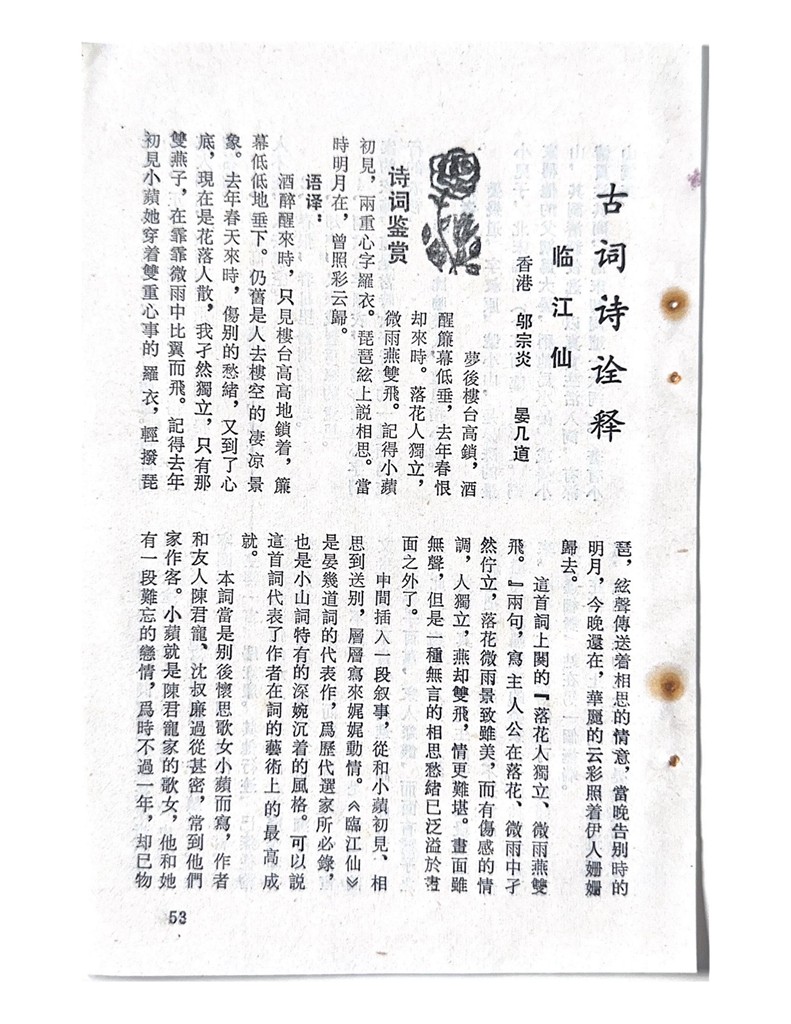 古词诗诠释
临江仙
香港 邬宗炎 晏几道
夢後樓台高鎖，酒
醒簾幕低垂，去年春恨
却來時。落花人獨立，
微雨燕雙飛。記得小蘋
初見，兩重心字羅衣。琵琶絃上説相思。當
時明月在，曾照彩云歸。
诗词鉴赏
语译：
酒醉醒來時，只見樓台高高地鎖着，簾
幕低低地垂下。仍舊是人去樓空的凄凉景
象。去年春天來時，傷别的愁緒，又到了心
底，現在是花落人散，我孑然獨立，只有那
雙燕子，在霏霏微雨中比翼而飛。記得去年
初見小蘋她穿着雙重心事的羅衣，輕撥琵
琶，絃聲傳送着相思的情意，當晚告别時的
明月，今晚還在，華麗的云彩照着伊人姗姗
歸去。
這首詞上闋的『落花人獨立、微雨燕雙
飛。』兩句，寫主人公在落花、微雨中孑
然佇立，落花微雨景致雖美，而有傷感的情
調，人獨立，燕却雙飛，情更難堪。畫面雖
無聲，但是一種無言的相思愁緒已泛溢於畫
面之外了。
中間插入一段叙事，從和小蘋初見、相
思到送别，層層寫來娓娓動情。《臨江仙》
是晏幾道詞的代表作，爲歷代選家所必錄，
也是小山詞特有的深婉沉着的風格。可以説
這首詞代表了作者在詞的藝術上的最高成
就。
本詞當是别後懷思歌女小蘋而寫，作者
和友人陳君寵、沈叔廉過從甚密，常到他們
家作客。小蘋就是陳君寵家的歌女，他和她
有一段難忘的戀情，爲時不過一年，却已物
53